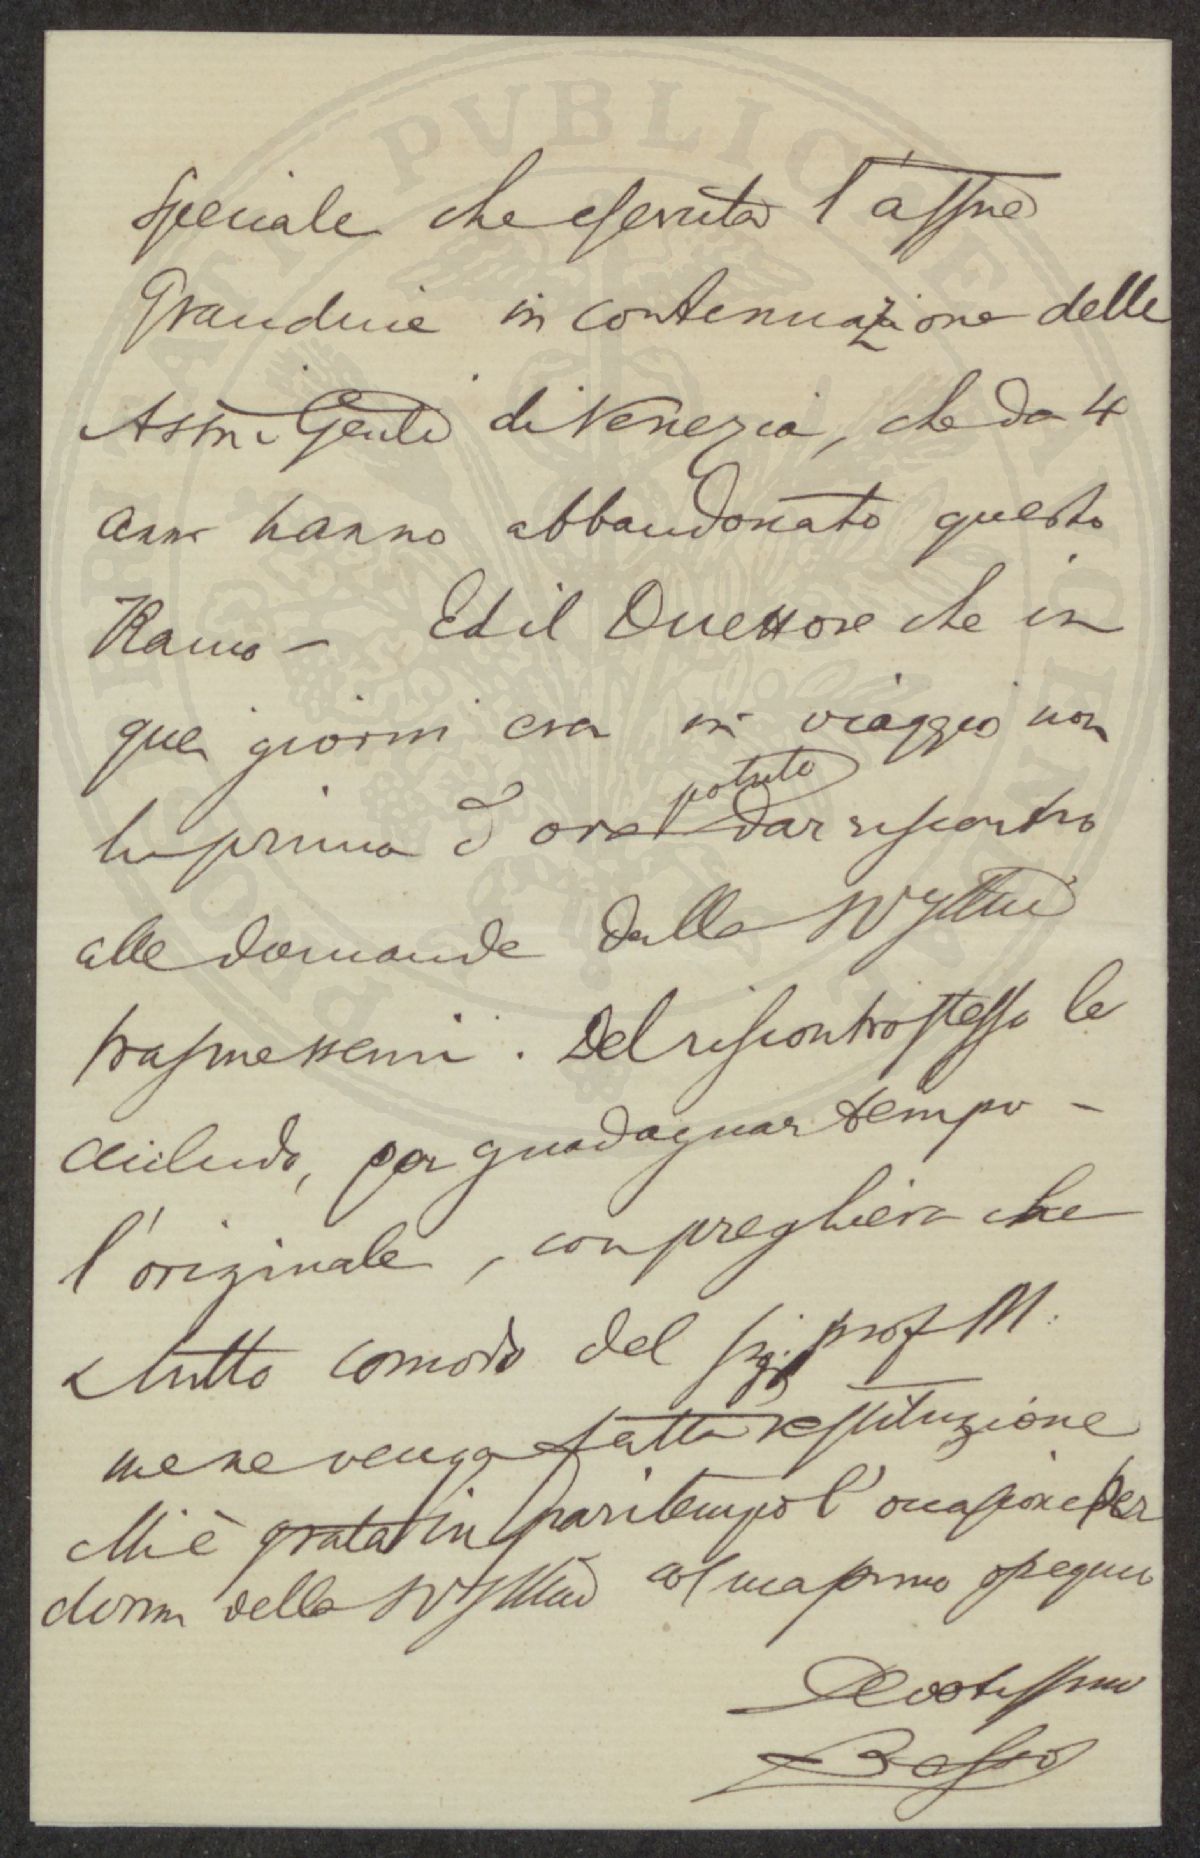 PRIVATI PVBLICAE
speciale che esercita l'assne
Grandine in contenuazione delle
Assni Genli di Venezia, che da 4
anni hanno abbandonato questo
Ramo – Ed il Direttore che in
quei giorni era in viaggio non
ha prima d'ora potuto dar riscontro
alle domande dalla SV Illma
trasmessemi. Del riscontro stesso le
accludo, per guadagnar tempo –
l'originale, con preghiera che
a tutto comodo del sig. prof M.
me ne venga fatta restituzione
Mi è grata in pari tempo l'occasione per
dirmi della SV Illma col massimo ossequio
Devotissimo
Besso